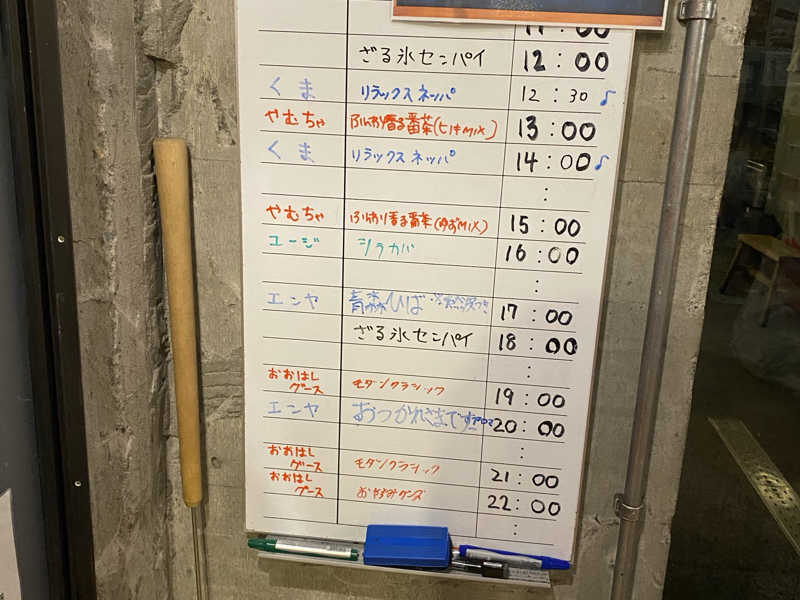 11:00
ざる氷センパイ 12:00
くま リラックスネッパ 12:30♪
やむちゃ ふんわり香る番茶(ヒノキMIX) 13:00
くま リラックスネッパ 14:00♪
:
やむちゃ ふんわり香る番茶(ゆずMIX) 15:00
ユージ シラカバ 16:00
:
エンヤ 青森ひば 17:00
ざる氷センパイ 18:00
:
おおはしグース モダンクラシック 19:00
エンヤ おつかれさまですアロマ 20:00
:
おおはしグース モダンクラシック 21:00
おおはしグース おやすみグース 22:00
: